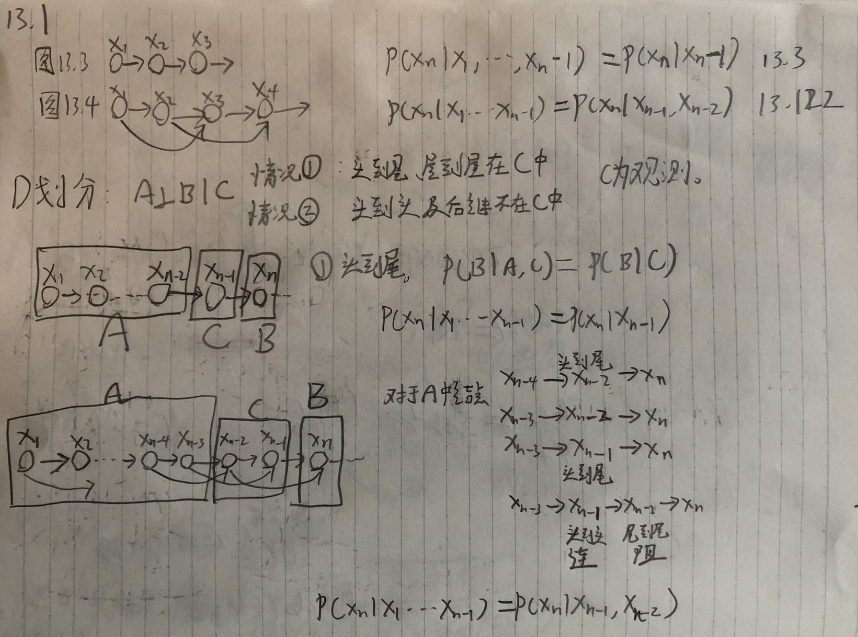 13.1
图13.3 x₁ x₂ x₃
P(xₙ|x₁,…,xₙ₋₁)=P(xₙ|xₙ₋₁) 13.3
图13.4 x₁ x₂ x₃ x₄
P(xₙ|x₁…xₙ₋₁)=P(xₙ|xₙ₋₁,xₙ₋₂) 13.122
D划分: A⊥B|C
情况①: 头到尾、尾到尾在C中
情况② 头到头及后继不在C中
C为观测。
x₁ x₂ … xₙ₋₂ xₙ₋₁ xₙ …
A C B
①头到尾。 P(B|A,C)=P(B|C)
P(xₙ|x₁…xₙ₋₁)=P(xₙ|xₙ₋₁)
A C B
x₁ x₂ … xₙ₋₄ xₙ₋₃ xₙ₋₂ xₙ₋₁ xₙ
对于A中
头到尾
xₙ₋₄→xₙ₋₂→xₙ
xₙ₋₃→xₙ₋₂→xₙ
xₙ₋₃→xₙ₋₁→xₙ
头到尾
xₙ₋₃→xₙ₋₁→xₙ₋₂→xₙ
头到头 尾到尾
连 阻
P(xₙ|x₁…xₙ₋₁)=P(xₙ|xₙ₋₁,xₙ₋₂)